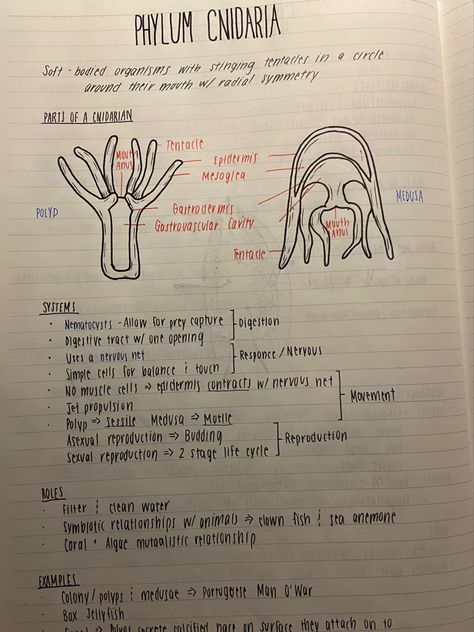 PHYLUM CNIDARIA
Soft-bodied organisms with stinging tentacles in a circle
around their mouth w/ radial symmetry
PARTS OF A CNIDARIAN
Tentacle
Mouth
Anus
Epidermis
Mesoglea
POLYP
MEDUSA
Gastrodermis
Gastrovascular Cavity
Mouth
Anus
Tentacle
SYSTEMS
· Nematocysts - Allow for prey capture
· Digestive tract w/ one opening
Digestion
· Uses a nervous net
· Simple cells for balance & touch
Responce / Nervous
· No muscle cells ⇒ epidermis contracts w/ nervous net
· Jet propulsion
· Polyp ⇒ Sessile Medusa ⇒ Motile
Movement
Asexual reproduction ⇒ Budding
Sexual reproduction ⇒ 2 stage life cycle
Reproduction
ROLES
· Filter & clean water
· Symbiotic relationships w/ animals ⇒ clown fish & sea anemone
· Coral + Algae mutualistic relationship
EXAMPLES
· Colony/polyps & medusae ⇒ Portuguese Man O'War
· Box Jellyfish
· Coral ⇒ Polyps secrete calcified base on surface they attach on to